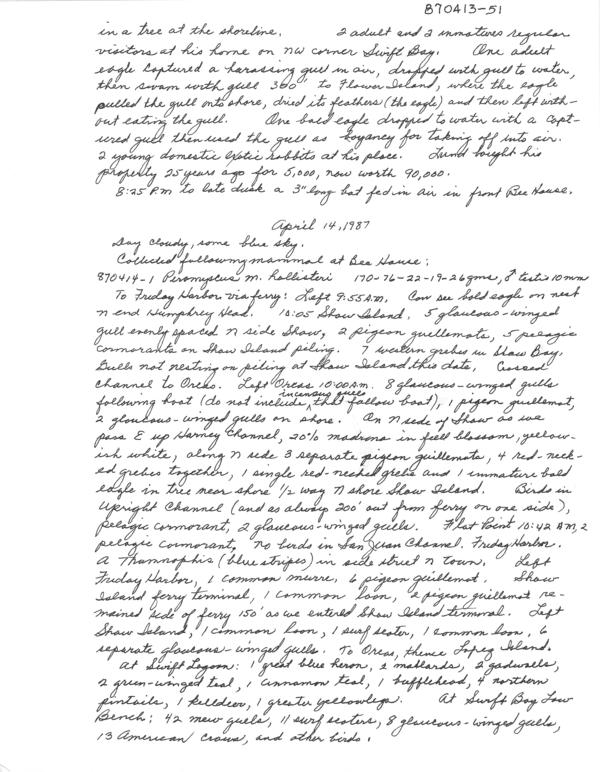 B70413-51
in a tree at the shoreline. 2 adult and 2 immatures regular
visitors at his home on NW corner Swift Bay. One adult
eagle captured a harassing gull in air, dropped with gull to water,
then swam with gull 300' to Flower Island, where the eagle
pulled the gull onto shore, dried its feathers (the eagle) and then left with-
out eating the gull. One bald eagle dropped to water with a capt-
ured gull then used the gull as boyancy for taking off into air.
2 young domestic exotic rabbits at his place. Lund bought his
property 25 years ago for 5,000, now worth 90,000.
8:25 P.M. to late dusk a 3" long bat fed in air in front Bee House.
April 14, 1987
Day cloudy, some blue sky.
Collected following mammal at Bee House:
870414-1 Peromyscus m. hollisteri 170-76-22-19-26gms, ♂ testis 10mm
To Friday Harbor via ferry: Left 9:55 A.M. Can see bald eagle on nest
n end Humphrey Head. 10:05 Shaw Island. 5 glaucous-winged
gull evenly spaced n side Shaw, 2 pigeon guillemots, 5 pelagic
cormorants on Shaw Island piling. 7 western grebes in Shaw Bay.
Gulls not nesting on piling at Shaw Island this date. Crossed
channel to Orcas. Left Orcas 10:00 A.M. 8 glaucous-winged gulls
following boat (do not include incensus gulls that follow boat), 1 pigeon guillemot,
2 glaucous-winged gulls on shore. On N side of Shaw as we
pass E up Harney Channel, 20% madrona in full blossom, yellow-
ish white, along n side 3 separate pigeon guillemots, 4 red-neck-
ed grebes together, 1 single red-necked grebe and 1 immature bald
eagle in tree near shore 1/2 way N shore Shaw Island. Birds in
Upright Channel (and as always 200' out from ferry on one side),
pelagic cormorant, 2 glaucous-winged gulls. Flat Point 10:42 AM, 2
pelagic cormorant, no birds in San Juan Channel. Friday Harbor.
A Thamnophis (blue stripes) in side street n town. Left
Friday Harbor, 1 common murre, 6 pigeon guillemot. Shaw
Island ferry terminal, 1 common loon, 2 pigeon guillemot re-
mained side of ferry 150' as we entered Shaw Island terminal. Left
Shaw Island, 1 common loon, 1 surf scoter, 1 common loon, 6
separate glaucous-winged gulls. To Orcas, thence Lopez Island.
At Swift Lagoon: 1 great blue heron, 2 mallards, 2 gadwells,
2 green-winged teal, 1 cinnamon teal, 1 bufflehead, 4 northern
pintails, 1 killdeer, 1 greater yellowlegs. At Swift Bay Low
Bench: 42 mew gulls, 11 surf scoters, 8 glaucous-winged gulls,
13 American crows, and other birds.